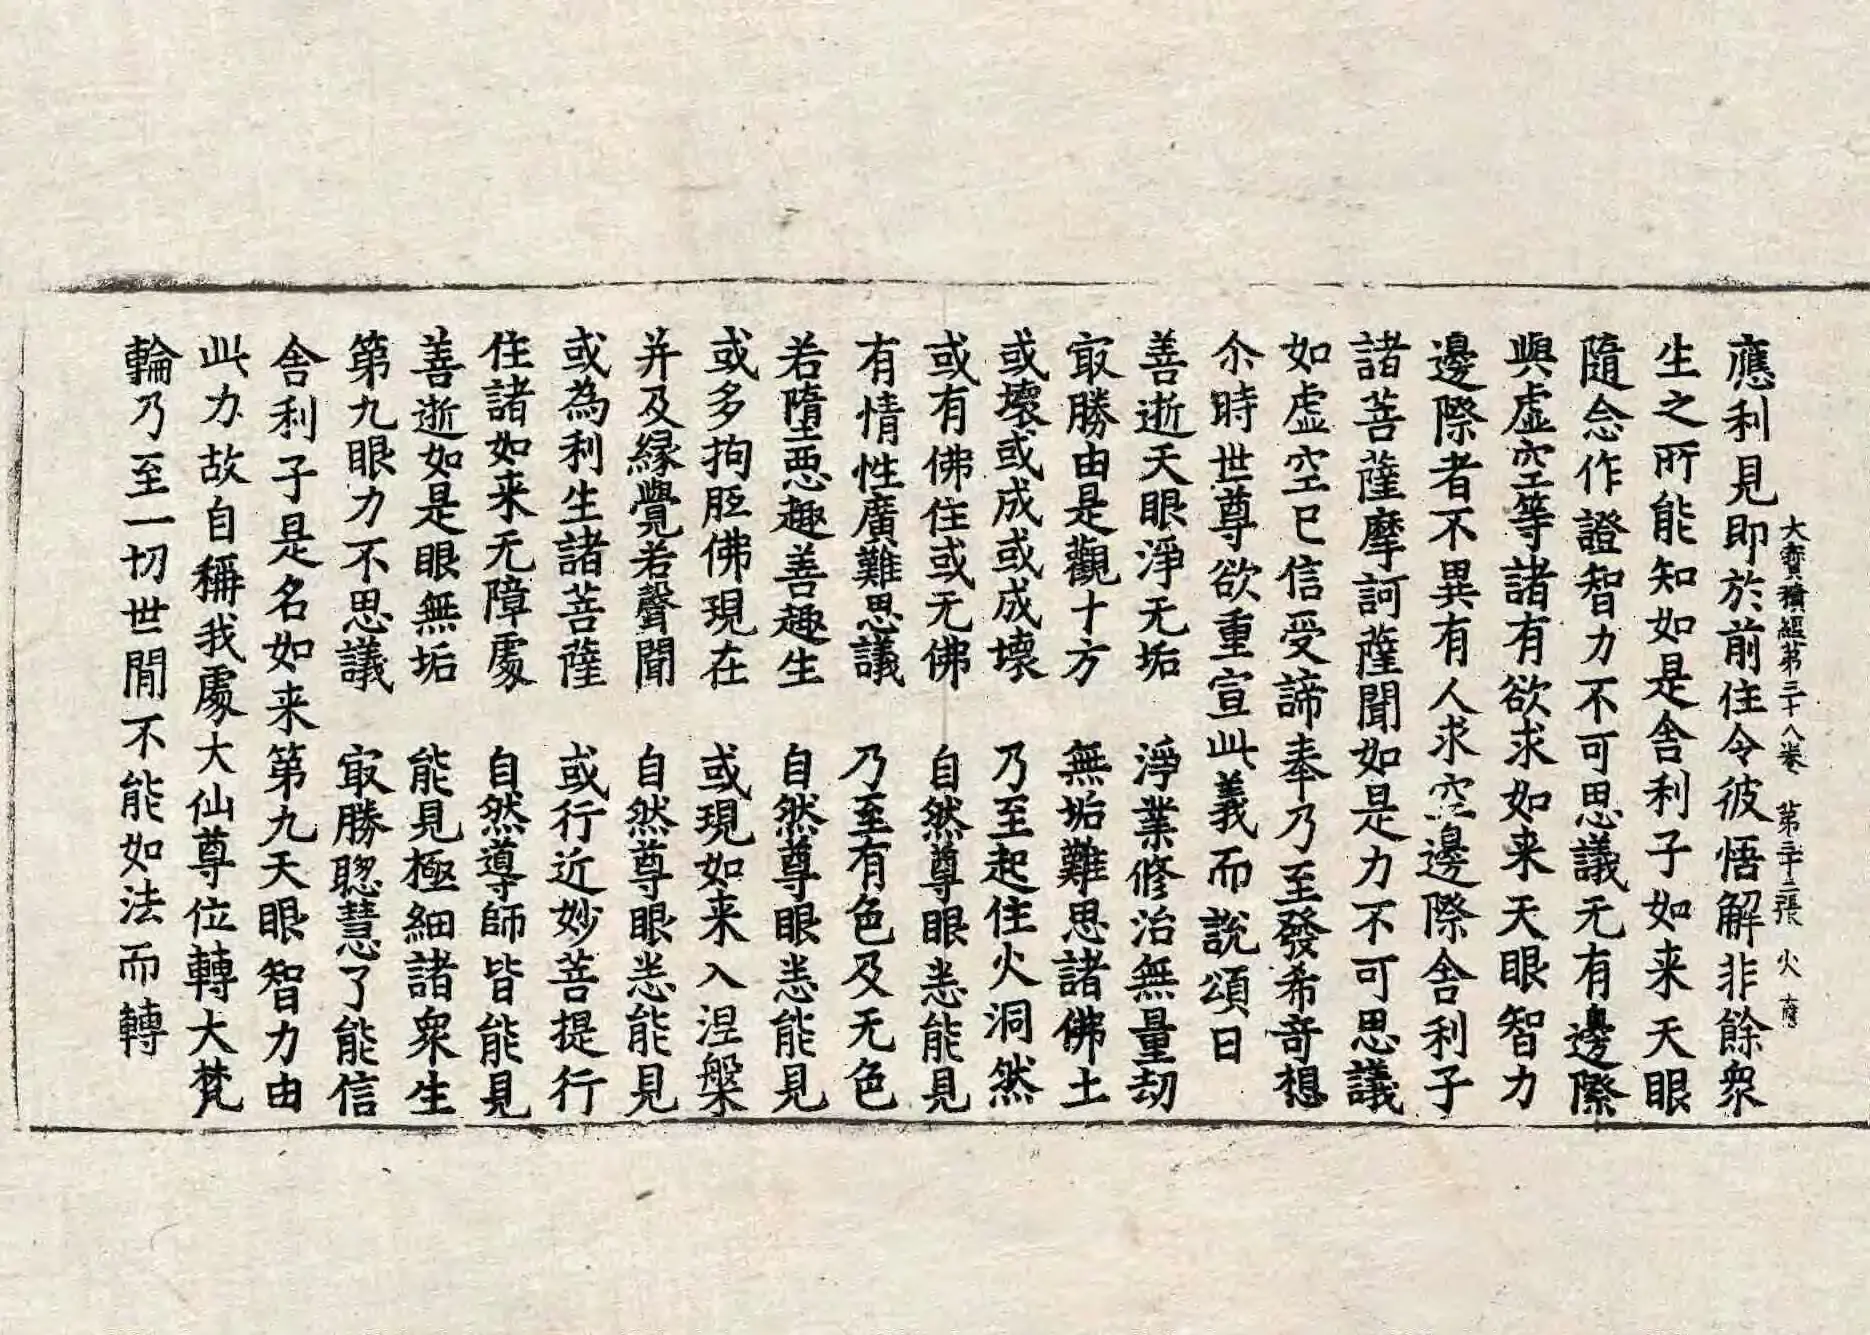 大寶積經第三十八卷 第三十二張 火
應利見即於前住令彼悟解非餘衆
生之所能知如是舍利子如来天眼
隨念作證智力不可思議无有邊際
與虛空等諸有欲求如来天眼智力
邊際者不異有人求空邊際舍利子
諸菩薩摩訶薩聞如是力不可思議
如虛空已信受諦奉乃至發希奇想
尒時世尊欲重宣此義而說頌曰
善逝天眼淨无垢 淨業修治無量劫
㝡勝由是觀十方 無垢難思諸佛土
或壞或成或成壞 乃至起住火洞然
或有佛住或无佛 自然尊眼悉能見
有情性廣難思議 乃至有色及无色
若墮惡趣善趣生 自然尊眼悉能見
或多拘胝佛現在 或現如来入涅槃
并及緣覺若聲聞 自然尊眼悉能見
或為利生諸菩薩 或行近妙菩提行
住諸如来无障處 自然導師皆能見
善逝如是眼無垢 能見極細諸衆生
第九眼力不思議 㝡勝聰慧了能信
舍利子是名如来第九天眼智力由
此力故自稱我處大仙尊位轉大梵
輪乃至一切世間不能如法而轉